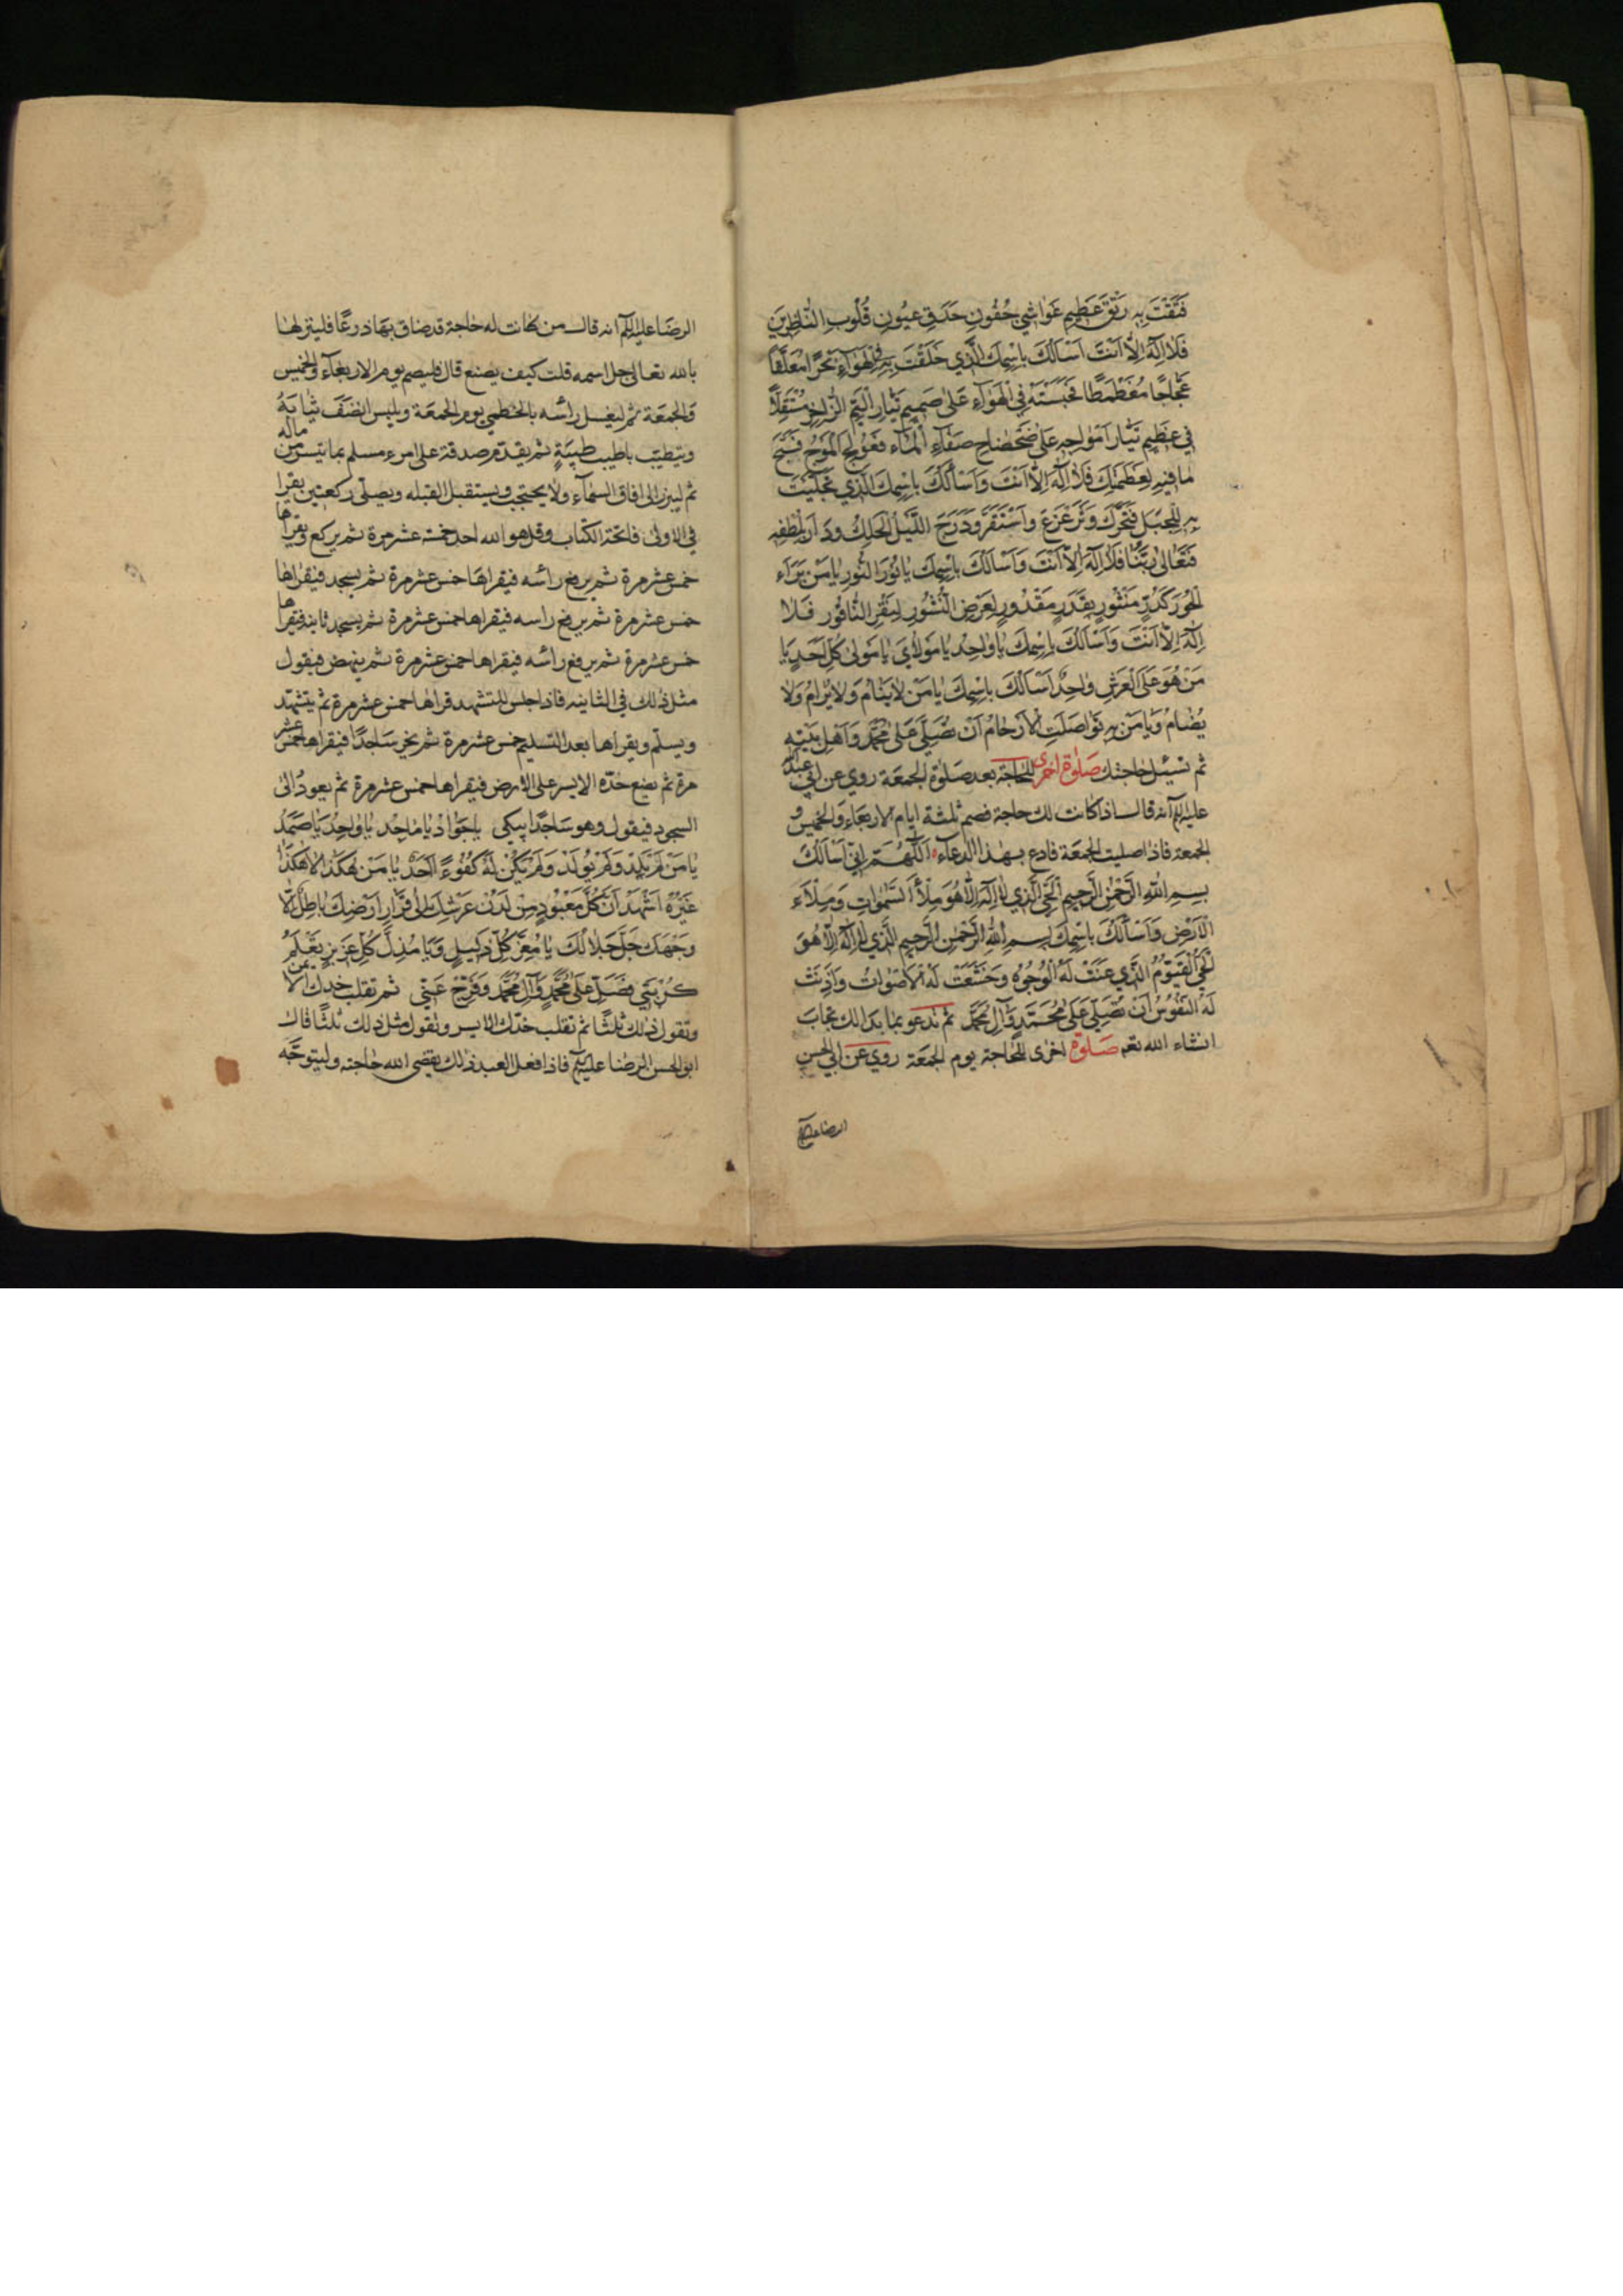 فَتَقْتَ بِهِ رَتْقَ عَظِيمِ غَوَاشِي جُفُونِ حَدَقِ عُيُونِ قُلُوبِ النَّاظِرِينَ
فَلَا اِلٰهَ اِلَّا اَنْتَ اَسْاَلُكَ بِاسْمِكَ الَّذِي خَلَقْتَ بِهِ فِي الْهَوَاءِ بَحْرًا مُعَلَّقًا
عَجَّاجًا مُغَطْمَطًا فَحَبَسْتَهُ فِي الْهَوَاءِ عَلٰى صَمِيمِ تَيَّارِ الْيَمِّ الزَّاخِرِ
فِي عَظِيمِ تَيَّارِ اَمْوَاجِهِ عَلٰى ضَحْضَاحِ صَفَاءِ الْمَاءِ فَعَزْلَجَ الْمَوْجُ فَسَبَّحَ
مَا فِيهِ لِعَظَمَتِكَ فَلَا اِلٰهَ اِلَّا اَنْتَ وَاَسْاَلُكَ بِاسْمِكَ الَّذِي تَجَلَّيْتَ
بِهِ لِلْجَبَلِ فَتَحَرَّكَ وَتَزَعْزَعَ وَاسْتَقَرَّ وَدَرَجَ اللَّيْلُ الْحَلِكُ وَدَارَ بِلُطْفِهِ
فَتَعَالٰى رَبُّنَا فَلَا اِلٰهَ اِلَّا اَنْتَ وَاَسْاَلُكَ بِاسْمِكَ يَا نُورَ النُّورِ يَا مَنْ بَرَاَ
الْحُورَ كَدُرٍّ مَنْثُورٍ بِقَدَرٍ مَقْدُورٍ لِعَرْضِ النُّشُورِ لِنَقْرِ النَّاقُورِ فَلَا
اِلٰهَ اِلَّا اَنْتَ وَاَسْاَلُكَ بِاسْمِكَ يَا وَاحِدُ يَا مَوْلَايَ يَا مَوْلٰى كُلِّ اَحَدٍ يَا
مَنْ هُوَ عَلَى الْعَرْشِ وَاحِدٌ اَسْاَلُكَ بِاسْمِكَ يَا مَنْ لَا يَنَامُ وَلَا يُرَامُ وَلَا
يُضَامُ وَيَا مَنْ بِهِ تَوَاصَلَتِ الْاَرْحَامُ اَنْ تُصَلِّيَ عَلٰى مُحَمَّدٍ وَاَهْلِ بَيْتِهِ
ثم تسئل حاجتك صَلٰوة اخرى للحاجة بعد صَلٰوة الجمعَة روي عن ابي عبد الله
عليه السلم انه قال اذا كانت لك حاجة فصم ثلثة ايام الاربعَاء وَالخميس و
الجمعة فاذا صليت الجمعَة فادع بهٰذا الدعآء اَللّٰهُمَّ اِنِّي اَسْاَلُكَ
بِسْمِ اللّٰهِ الرَّحْمٰنِ الرَّحِيمِ الْحَيِّ الَّذِي لَا اِلٰهَ اِلَّا هُوَ مِلْاَ السَّمٰوَاتِ وَمِلْاَءَ
الْاَرْضِ وَاَسْاَلُكَ بِاسْمِكَ بِسْمِ اللّٰهِ الرَّحْمٰنِ الرَّحِيمِ الَّذِي لَا اِلٰهَ اِلَّا هُوَ
الْحَيُّ الْقَيُّومُ الَّذِي عَنَتْ لَهُ الْوُجُوهُ وَخَشَعَتْ لَهُ الْاَصْوَاتُ وَاَذِنَتْ
لَهُ النُّفُوسُ اَنْ تُصَلِّيَ عَلٰى مُحَمَّدٍ وَآلِ مُحَمَّدٍ ثم تدعو بما بدا لك تجاب
انشاء الله تعم صَلٰوة اخرى للحَاجة يوم الجمعَة روي عن ابي الحسن
الرضا عليه السلم
الرضَا عليه السلم انه قال من كانت له حَاجة قد ضاق بهَا ذرعًا فلينزلها
بالله تعالى جل اسمه قلت كيف يصنع قال فليصم يوم الاربعَآء والخميس
وَالجمعَة ثم ليغسل رأسه بالخطمي يوم الجمعَة ويلبس انضَفَ ثيَابَهُ
ويتطيّب باطيب طِيبَةٍ ثم يقدّم صدقة على امرء مسلم بما تيسر من ماله
ثم ليبرز الى افاق السمآء ولا يحتجب ويستقبل القبله ويصلّي ركعتين يقرا
في الاولىٰ فاتحة الكتاب وقل هو الله احد خمسة عشر مرة ثم يركع ويقراها
خمس عشر مرة ثم يرفع رأسه فيقراهَا خمس عشر مرة ثم يسجد فيقراها
خمس عشر مرة ثم يرفع راسه فيقراها خمس عشر مرة ثم يسجد ثانية فيقراها
خمس عشر مرة ثم يرفع رأسه فيقراها خمس عشر مرة ثم ينهض فيقول
مثل ذٰلك في الثانيه فاذا جلس للتشهد قراها خمس عشر مرة ثم يتشهّد
ويسلّم ويقراها بعد التسليم خمس عشر مرة ثم يخر سَاجدًا فيقراها خمس عشر
مرة ثم يضع خدّه الايسر على الارض فيقراها خمس عشر مرة ثم يعود الى
السجود فيقول وهو سَاجدًا يبكي يَا جَوَادُ يَا مَاجِدُ يَا وَاحِدُ يَا صَمَدُ
يَا مَنْ لَمْ يَلِدْ وَلَمْ يُولَدْ وَلَمْ يَكُنْ لَهُ كُفُوءً اَحَدٌ يَا مَنْ هٰكَذَا لَا هٰكَذَا
غَيْرُهُ اَشْهَدُ اَنَّ كُلَّ مَعْبُودٍ مِنْ لَدُنْ عَرْشِكَ اِلٰى قَرَارِ اَرْضِكَ بَاطِلٌ اِلَّا
وَجْهَكَ جَلَّ جَلَالُكَ يَا مُعِزَّ كُلِّ ذَلِيلٍ وَيَا مُذِلَّ كُلِّ عَزِيزٍ تَعْلَمُ
كُرْبَتِي فَصَلِّ عَلٰى مُحَمَّدٍ وَآلِ مُحَمَّدٍ وَفَرِّجْ عَنِّي ثم تقلب خدك الايمن
وتقول ذٰلك ثلثًا ثم تقلب خدّك الايسر وتقول مثل ذلك ثلثًا قال
ابو الحسن الرضا عليه السلم فاذا فعل العبد ذٰلك يقضى الله حَاجته وليتوجّه